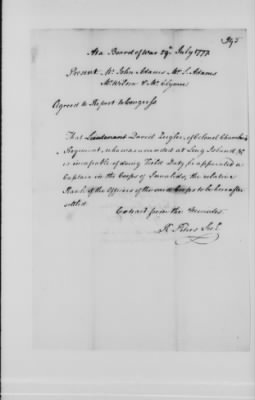 395
At a Board of War 29th July 1777
Present Mr. John Adams Mr. S. Adams
Mr. Wilson & Mr. Clymer
Agreed to Report to Congress
That Lieutenant David Zeigler, of Colonel
Regiment, who was wounded at Long Island, &
is incapable of doing Field Duty, be appointed a
Captain in the Corps of Invalids, the relative
Rank of the Officers of the said Corps to be hereafter
settled
Extract from the Minutes
R. Peters Secy.